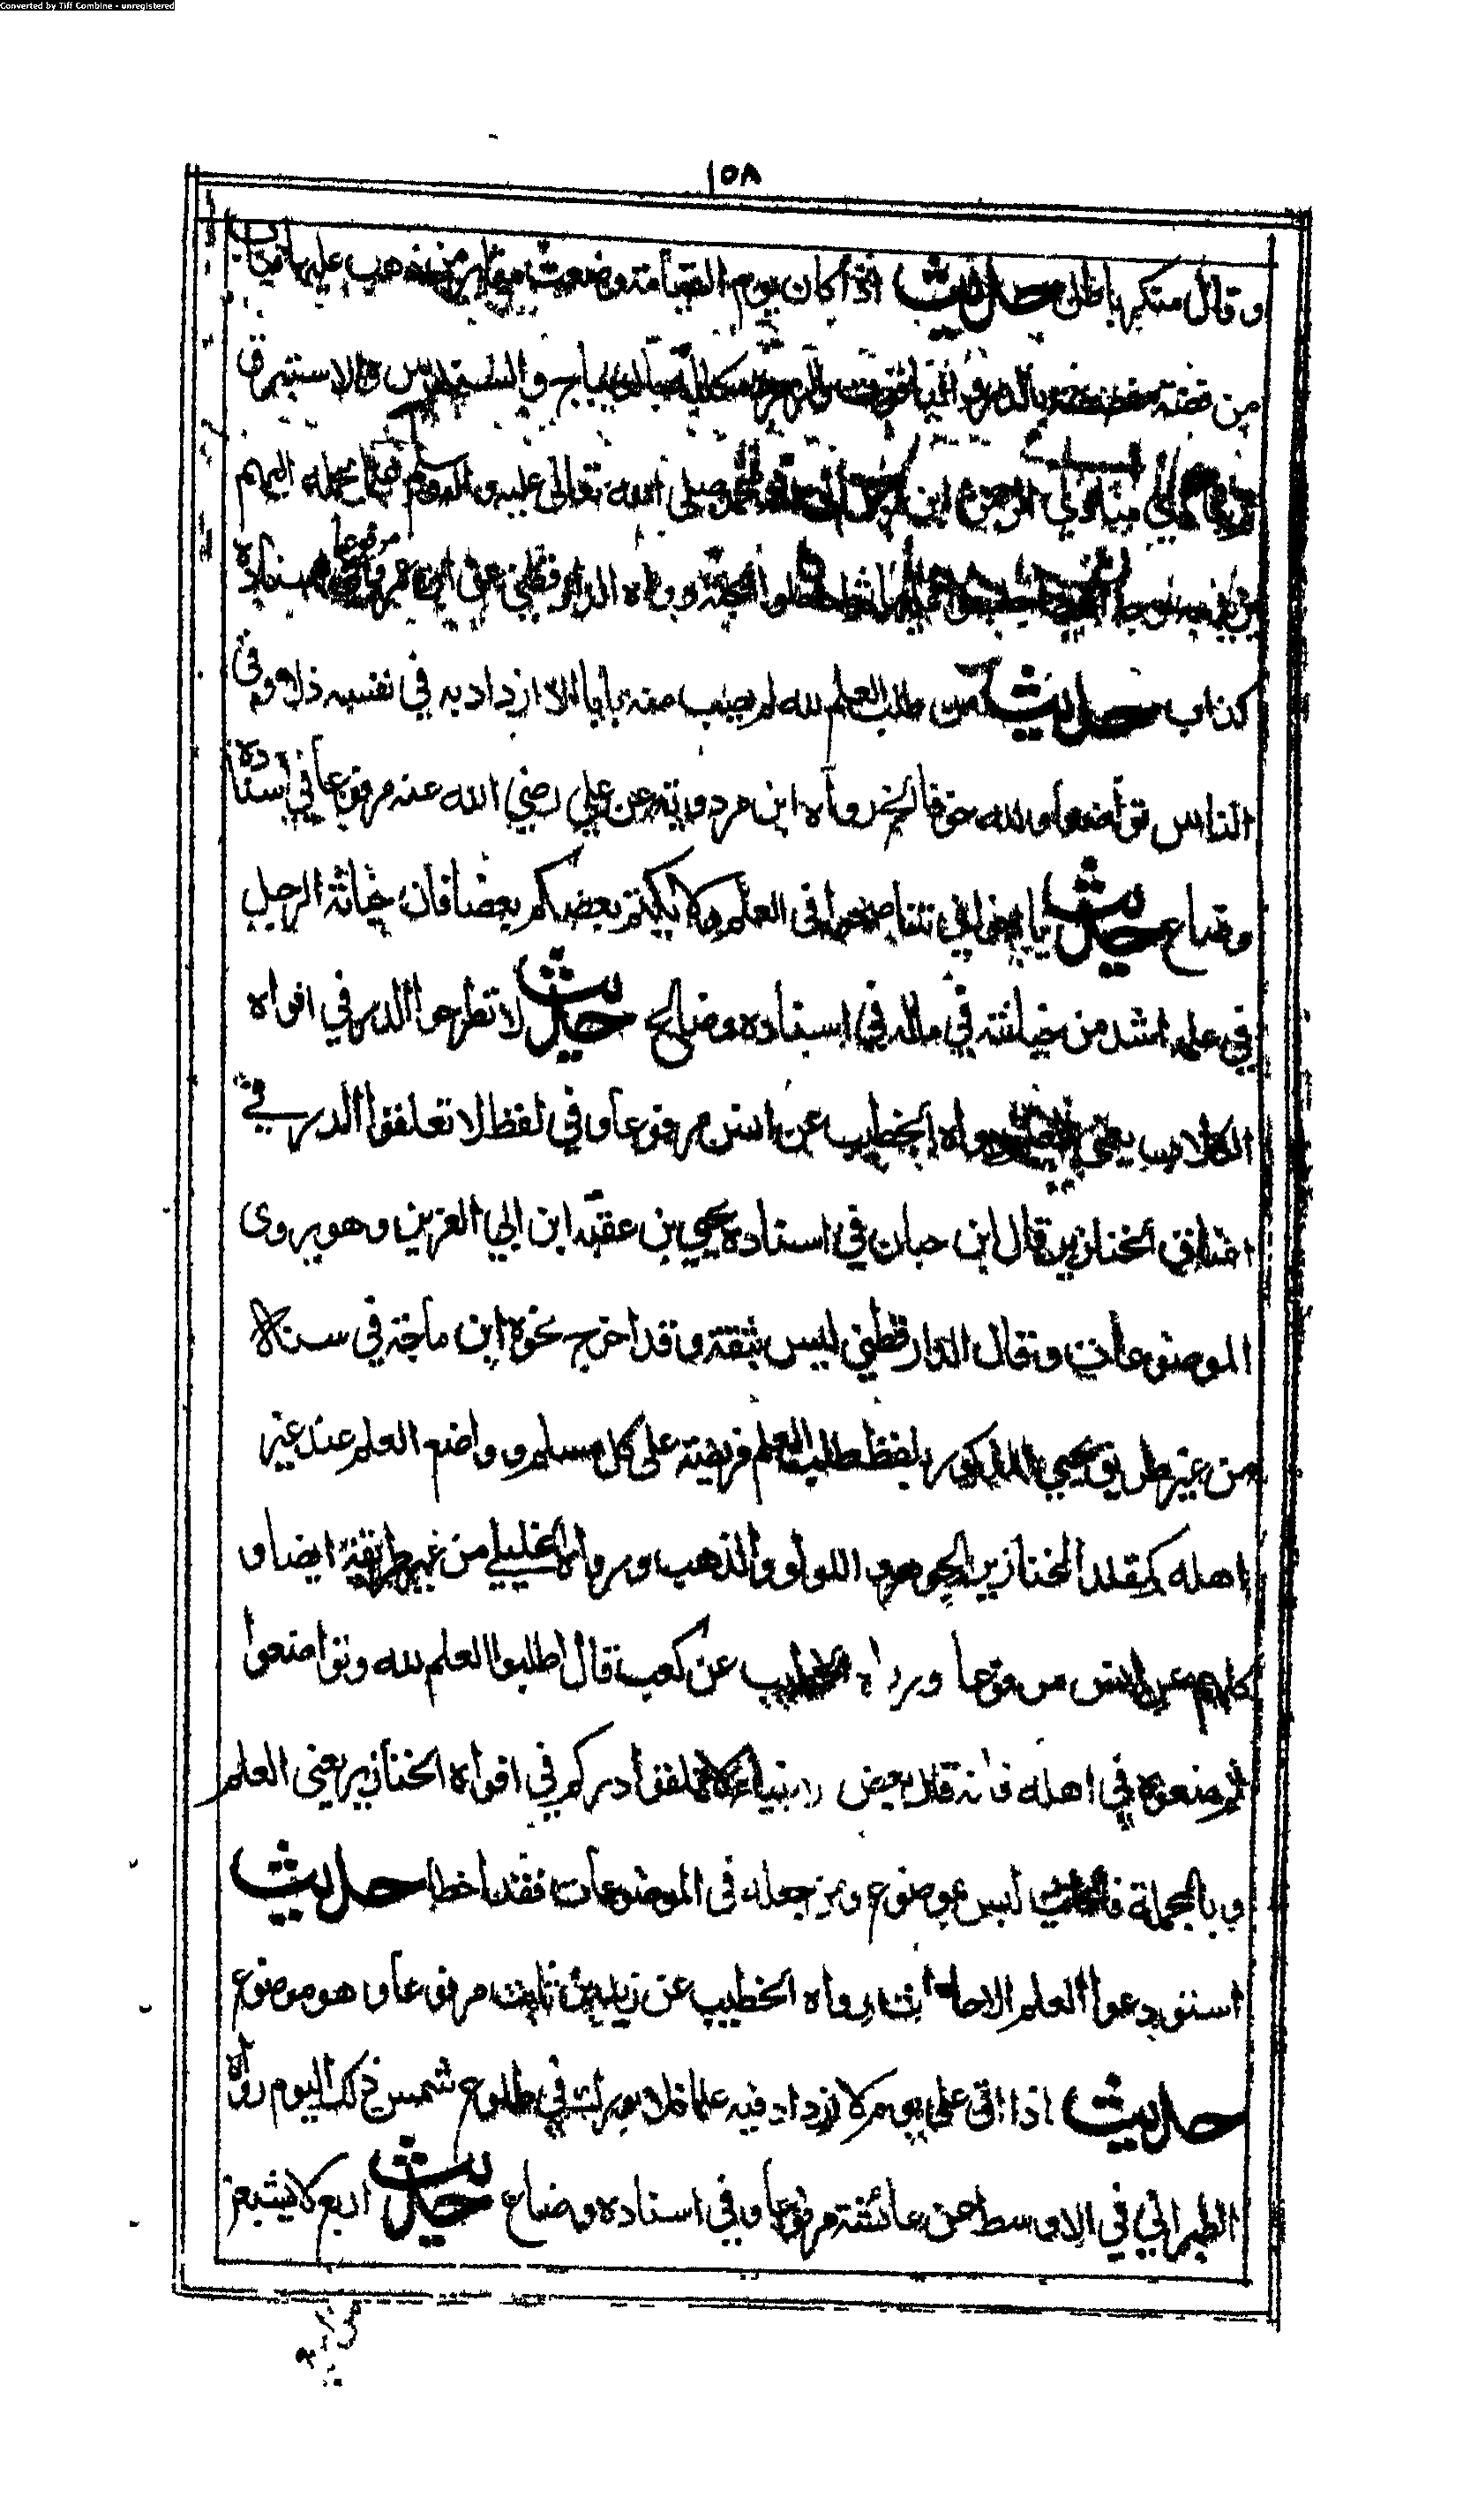 Converted by Tiff Combine - unregistered
١٥٨
وقال منكر باطل حديث اذا كان يوم القيامة وضعت منابر من ذهب عليها قباب
من فضة مفضضة بالدر والياقوت والزمرد مكللة بالديباج والسندس والاستبرق
صلى الله تعالى عليه وسلم فيما يحمله اليهم
الجنة ورواه الدارقطني عن ابن عمر مرفوعا
كذاب حديث من طلب العلم لله لم يصب منه بابا الا ازداد به في نفسه ذلا وفي
الناس تواضعا ولله خوفا الخ رواه ابن مردويه عن علي رضي الله عنه مرفوعا في اسناده
وضاع حديث يا اخواني تناصحوا في العلم ولا يكتم بعضكم بعضا فان خيانة الرجل
في علمه اشد من خيانته في ماله في اسناده وضاع حديث لا تطرحوا الدر في افواه
الكلاب يعني رواه الخطيب عن انس مرفوعا وفي لفظ لا تعلقوا الدر في
اعناق الخنازير قال ابن حبان في اسناده يحيي بن عقبه ابن ابي العزيز وهو يروى
الموضوعات وقال الدارقطني ليس بثقة وقد اخرج نحوه ابن ماجة في سننه
من غير طريق يحيي المذكور بلفظ طلب العلم فريضة على كل مسلم و واضع العلم عند غير
اهله كمقلد الخنازير الجوهر و اللولو والذهب ورواه الخليلي من غير طريقة ايضا و
كلهم عن انس مرفوعا ورواه الخطيب عن كعب قال اطلبوا العلم لله وتواضعوا
ثم ضعوه في اهله فانه قال بعض الانبياء لا تلقوا دركم في افواه الخنازير يعنى العلم
و بالجملة فالحديث ليس بموضوع ومن جعله في الموضوعات فقد اخطا حديث
استودعوا العلم الاحداث رواه الخطيب عن زيد بن ثابت مرفوعا و هو موضوع
حديث اذا اتى علي يوم لا ازداد فيه علما فلا بورك في طلوع شمس ذلك اليوم رواه
الطبراني في الاوسط عن عائشة مرفوعا و في اسناده وضاع حديث اربع لا يشبعن